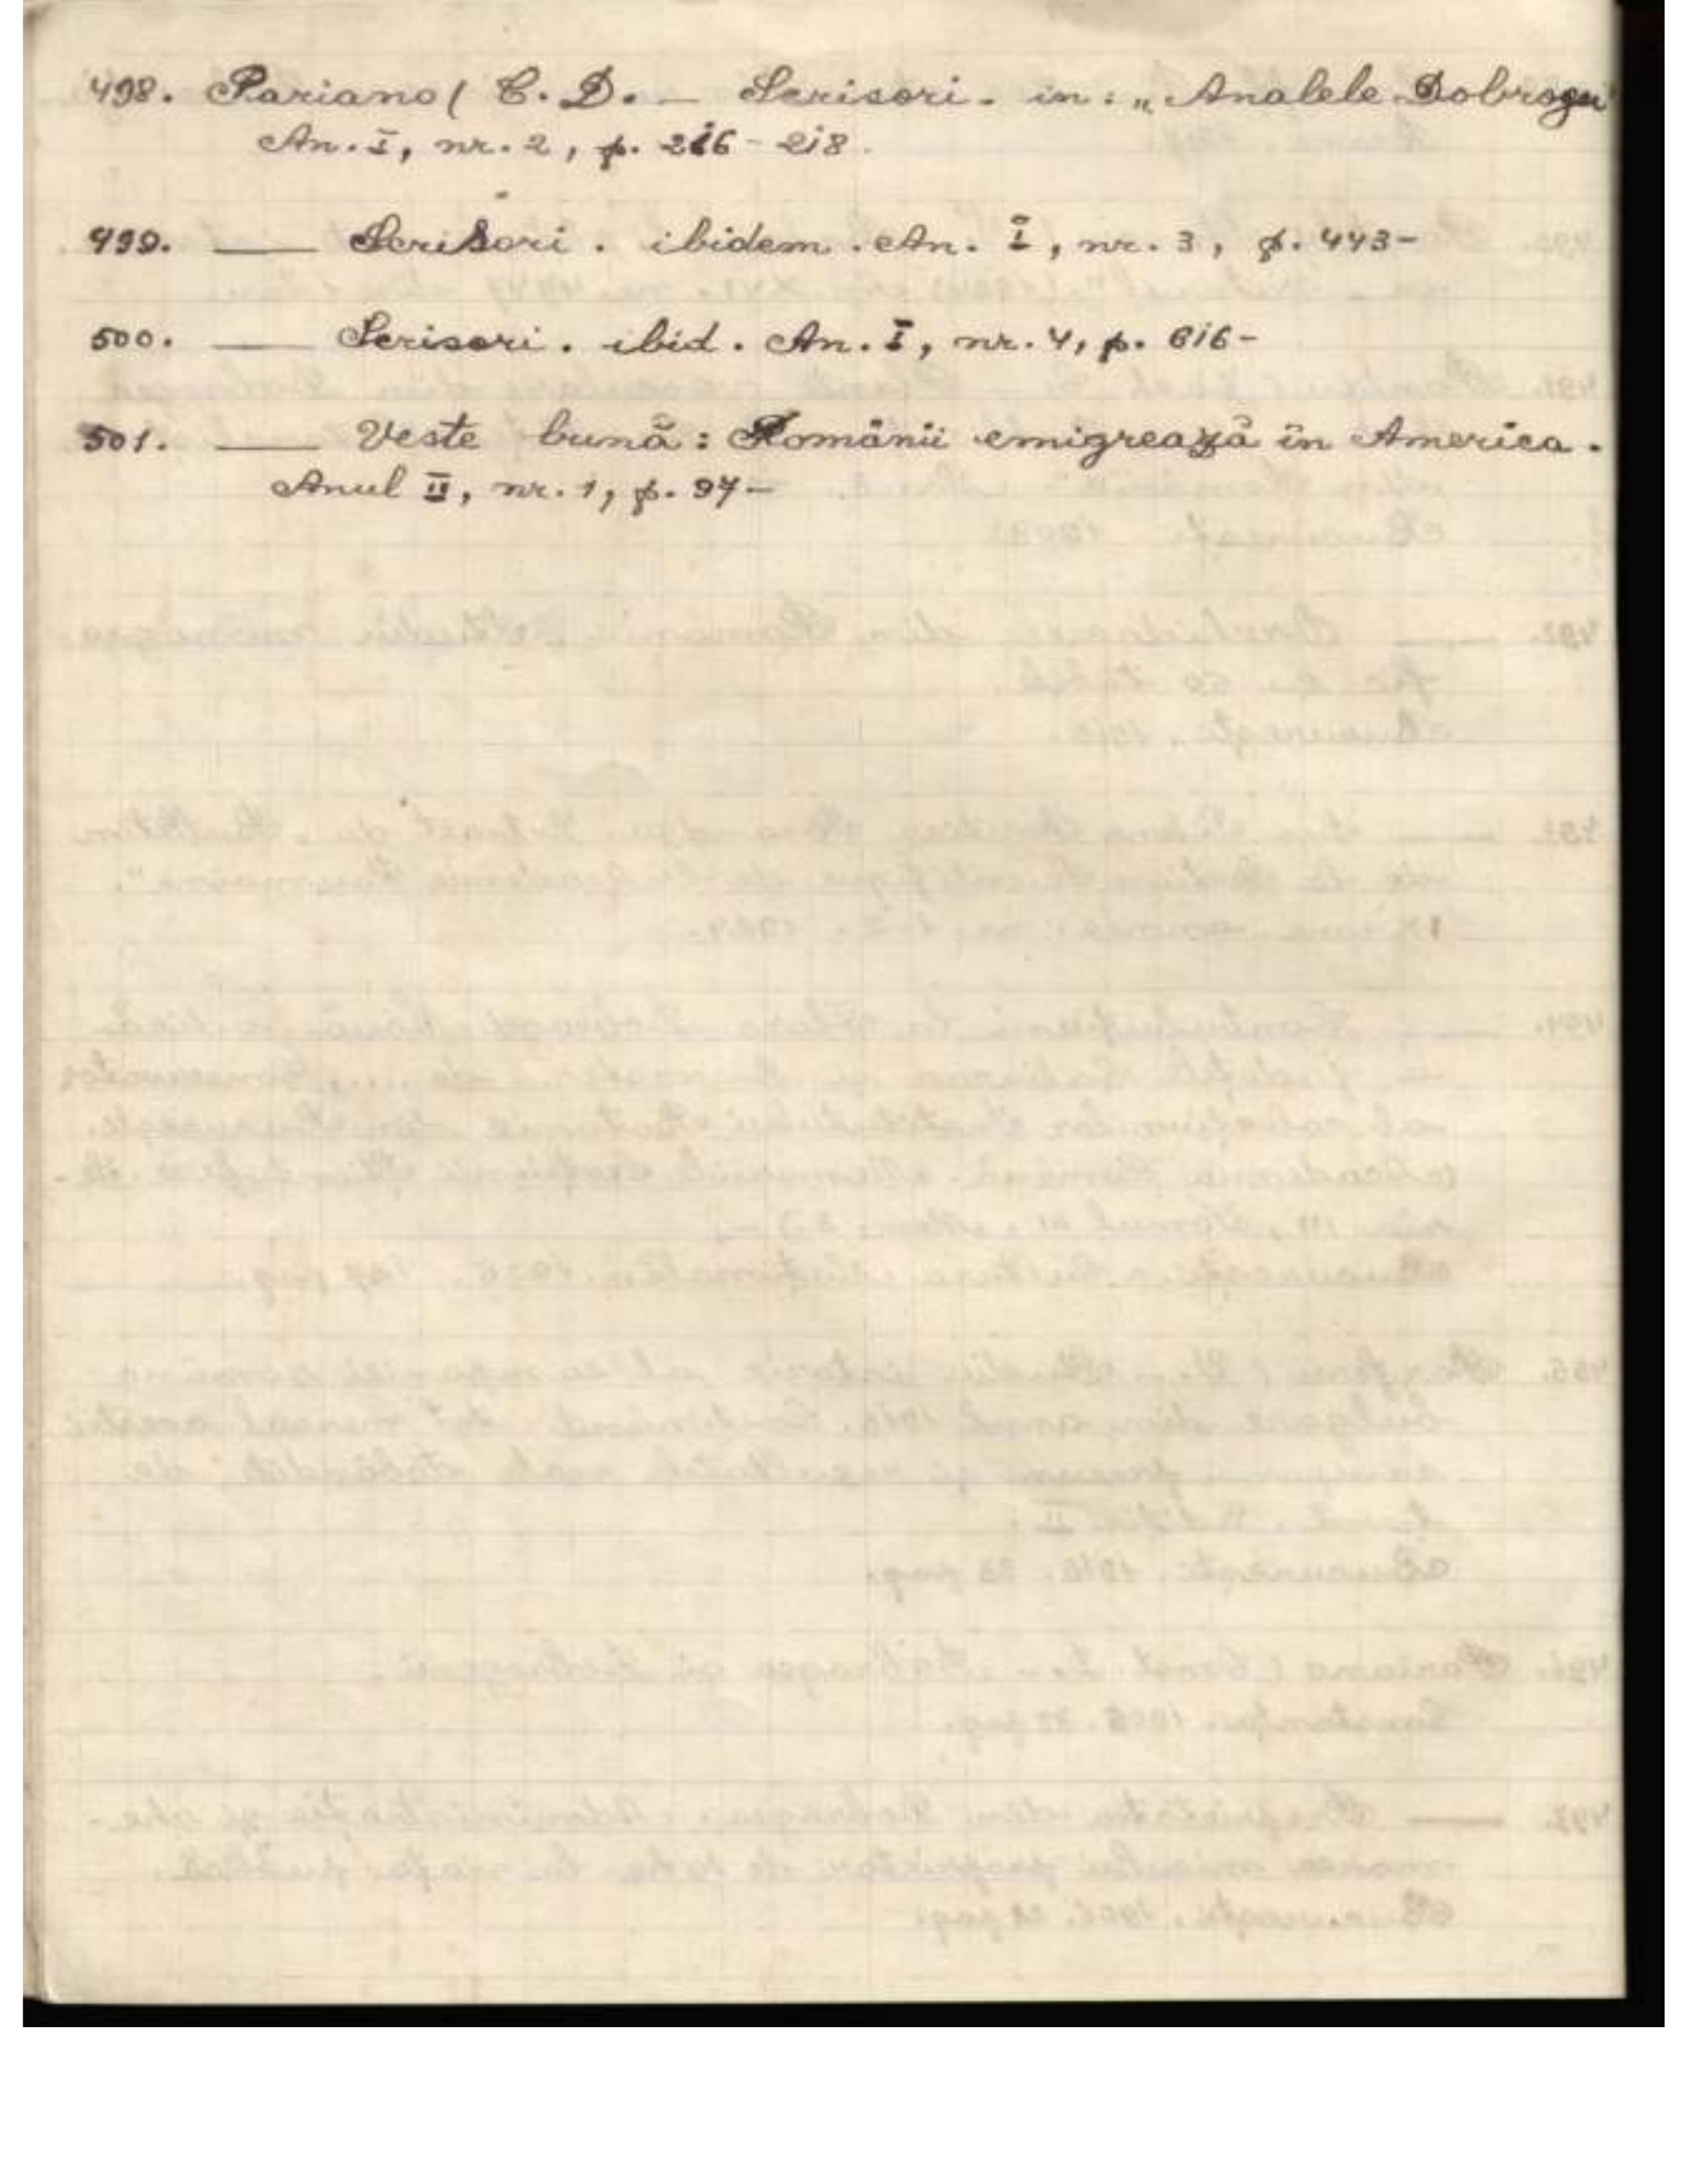 498. Pariano ( C. D. — Scrisori. in: „Analele Dobrogei"
An. I, nr. 2, p. 216-218.
499. —— Scrisori. ibidem. An. I, nr. 3, p. 443-
500. —— Scrisori. ibid. An. I, nr. 4, p. 616-
501. —— Veste bună: Românii emigrează în America.
Anul II, nr. 1, p. 97-